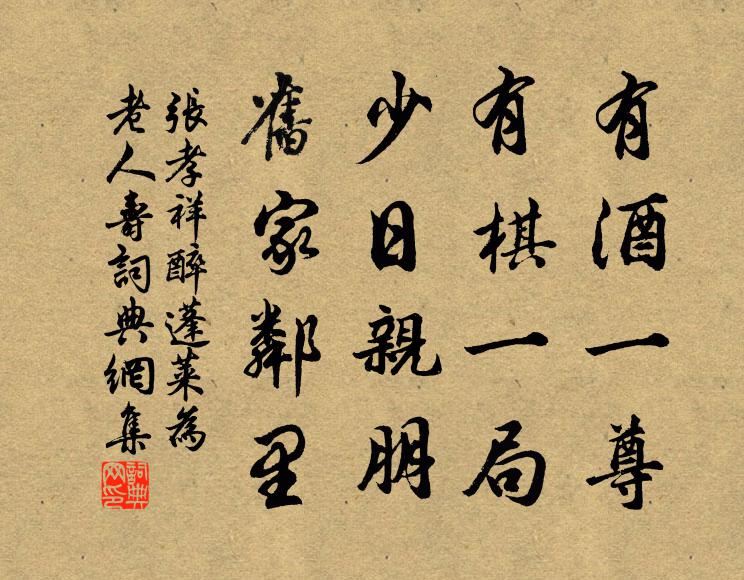 有酒一尊
有棋一局
少日親朋
舊家鄰里
張孝祥醉蓬萊為
老人壽詞典網集
詞典网印